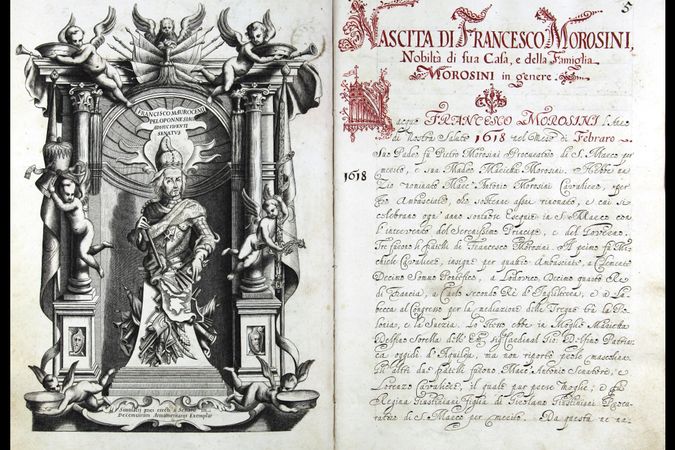 FRANCISCO MAUROCENO
PELOPONNESIACO
ADHUC VIVENTI
SENATVS
Simulacri pnei erecti a Senatu
Decemvirum Armamentarij Exemplar
5
NASCITA DI FRANCESCO MOROSINI,
Nobiltà di sua Casa, e della Famiglia
MOROSINI in genere.
Nacque FRANCESCO MOROSINI l'Anno
di Nostra Salute 1618 nel Mese di Febraro.
1618
Suo Padre fù Pietro Morosini Procurator di S. Marco per
merito, e sua Madre Marietta Morosini. Hebbe un
Zio nominato Marc' Antonio Morosini Cavaliere, per
Ambasciate, che sostenne assai rinomato, e cui si
celebrano ogn' anno sontuose Esequie in S. Marco con
l'intervento del Serenissimo Prencipe, e del Governo.
Tre furono li fratelli di Francesco Morosini. Il primo fù Mi-
chiel Cavaliere, insigne per quatro Ambasciate, à Clemente
Decimo Sommo Pontefice, a Lodovico Decimo quarto Rè
di Francia, à Carlo Secondo Rè d' Inghilterra, e à Lu-
becca al Congresso per la mediazione delle Tregue trà la Po-
lonia, e la Suezia. Lo stesso ebbe in Moglie Marietta
Delfino Sorella dell' Em. sig. Cardinal Gio: Delfino Patriar-
ca oggidi d' Aquilea, mà non riportò prole mascolina.
Gli altri due fratelli furono Marc' Antonio Senatore, e
Lorenzo Cavaliere, il quale pur prese Moglie, e fù
Regina Giustiniani figlia di Girolamo Giustiniani Procu-
rator di S. Marco per merito. Da questa ne na-